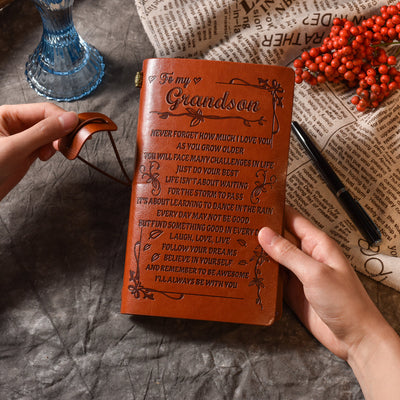 To my
Grandson
NEVER FORGET HOW MUCH I LOVE YOU
AS YOU GROW OLDER
YOU WILL FACE MANY CHALLENGES IN LIFE
JUST DO YOUR BEST
LIFE ISN'T ABOUT WAITING
FOR THE STORM TO PASS
IT'S ABOUT LEARNING TO DANCE IN THE RAIN
EVERY DAY MAY NOT BE GOOD
BUT FIND SOMETHING GOOD IN EVERY
LAUGH, LOVE, LIVE
FOLLOW YOUR DREAMS
BELIEVE IN YOURSELF
AND REMEMBER TO BE AWESOME
I'LL ALWAYS BE WITH YOU
RATHER